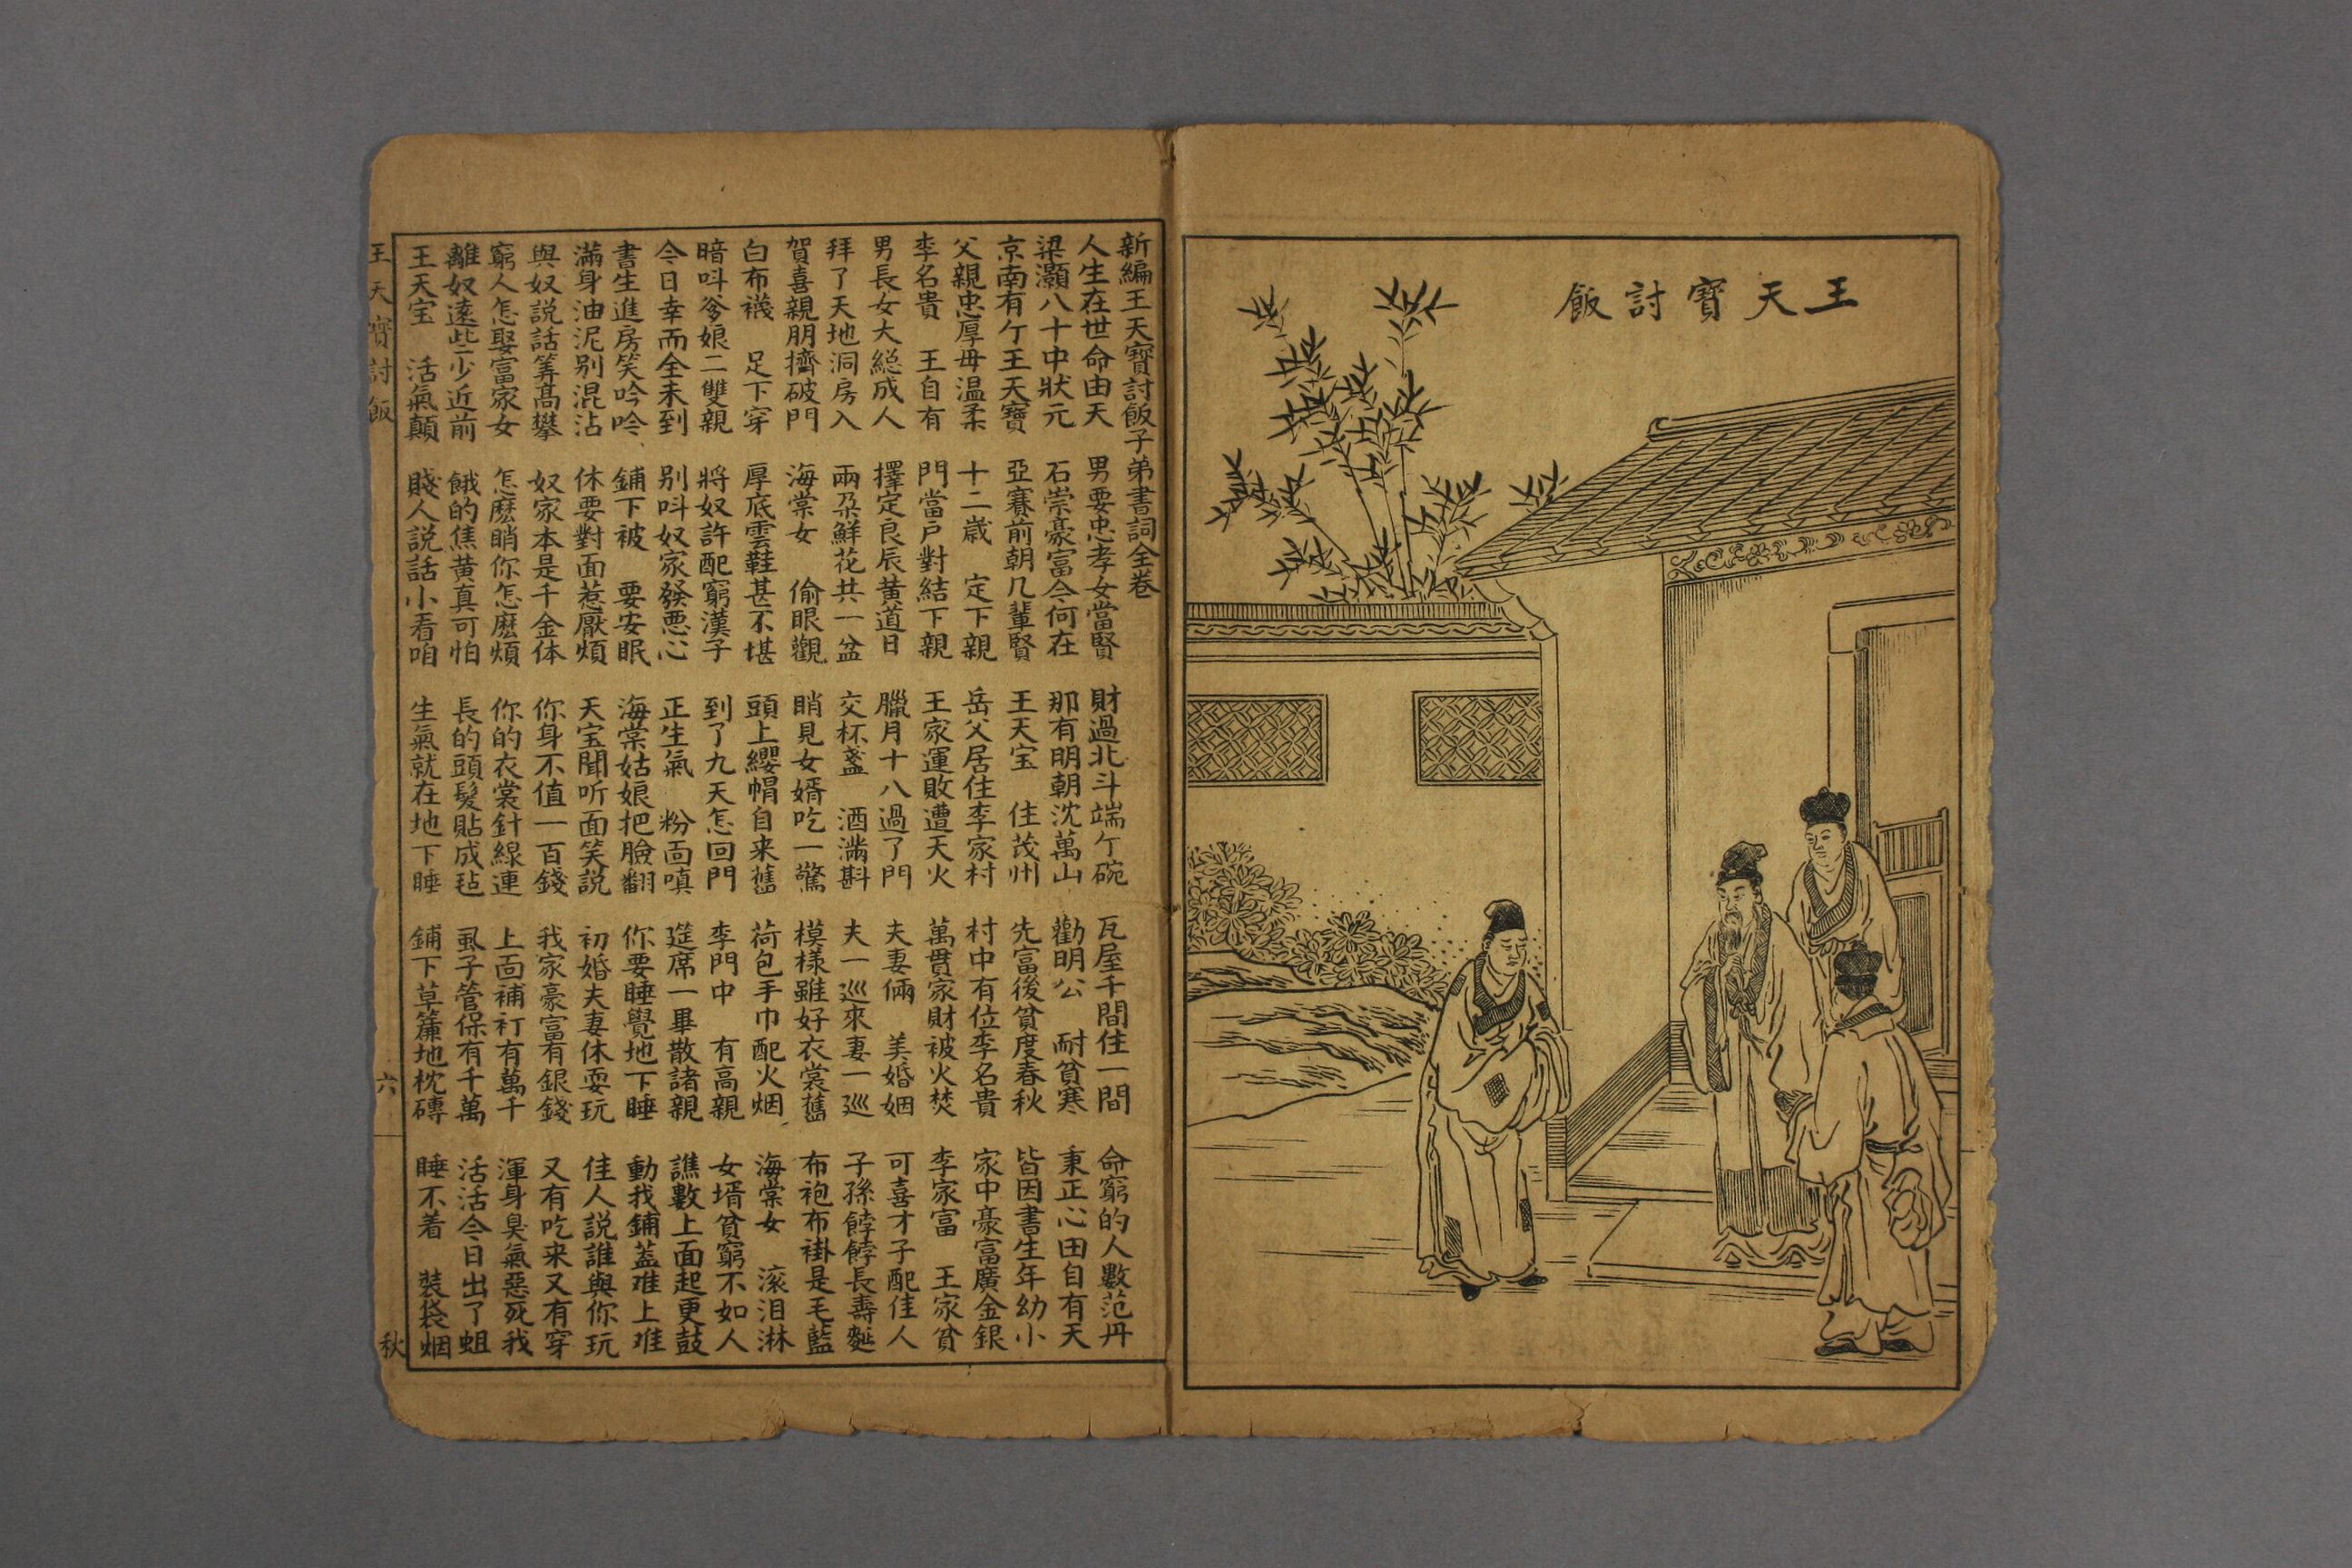 王天寶討飯
新編王天寶討飯子弟書詞全卷
人生在世命由天 男要忠孝女當賢 財過北斗端亇碗 瓦屋千間住一間 命窮的人數范丹
梁灝八十中狀元 石崇豪富今何在 那有明朝沈萬山 勸明公 耐貧寒 秉正心田自有天
京南有亇王天寶 亞賽前朝几輩賢 王天宝 住茂州 先富後貧度春秋 皆因書生年幼小
父親忠厚母温柔 十二歲 定下親 岳父居住李家村 村中有位李名貴 家中豪富廣金銀
李名貴 王自有 門當戶對結下親 王家運敗遭天火 萬貫家財被火焚 李家富 王家貧
男長女大緫成人 擇定良辰黄道日 臘月十八過了門 夫妻倆 美婚姻 可喜才子配佳人
拜了天地洞房入 兩朶鮮花共一盆 交杯盞 酒滿斟 夫一巡來妻一巡 子孫餑餑長壽麵
賀喜親朋擠破門 海棠女 偷眼觀 睄見女婿吃一驚 模樣雖好衣裳舊 布袍布褂是毛藍
白布襪 足下穿 厚底雲鞋甚不堪 頭上纓帽自来舊 荷包手巾配火烟 海棠女 滚泪淋
暗呌爹娘二雙親 將奴許配窮漢子 到了九天怎回門 李門中 有高親 女壻貧窮不如人
今日幸而全未到 别呌奴家發悪心 正生氣 粉面嗔 筵席一畢散諸親 譙數上面起更鼓
書生進房笑吟吟 鋪下被 要安眠 海棠姑娘把臉翻 你要睡覺地下睡 動我鋪蓋难上难
滿身油泥别混沾 休要對面惹厭煩 天宝聞听面笑説 初婚夫妻休耍玩 佳人説誰與你玩
與奴説話筭髙攀 奴家本是千金体 你身不值一百錢 我家豪富有銀錢 又有吃来又有穿
窮人怎娶富家女 怎麽睄你怎麽煩 你的衣裳針線連 上面補衬有萬千 渾身臭氣惡死我
離奴遠些少近前 餓的焦黄真可怕 長的頭髮貼成毡 虱子管保有千萬 活活今日出了蛆
王天宝 活氣顛 賤人説話小看咱 生氣就在地下睡 鋪下草簾地枕磚 睡不着 装袋烟
王天寶討飯 六 秋